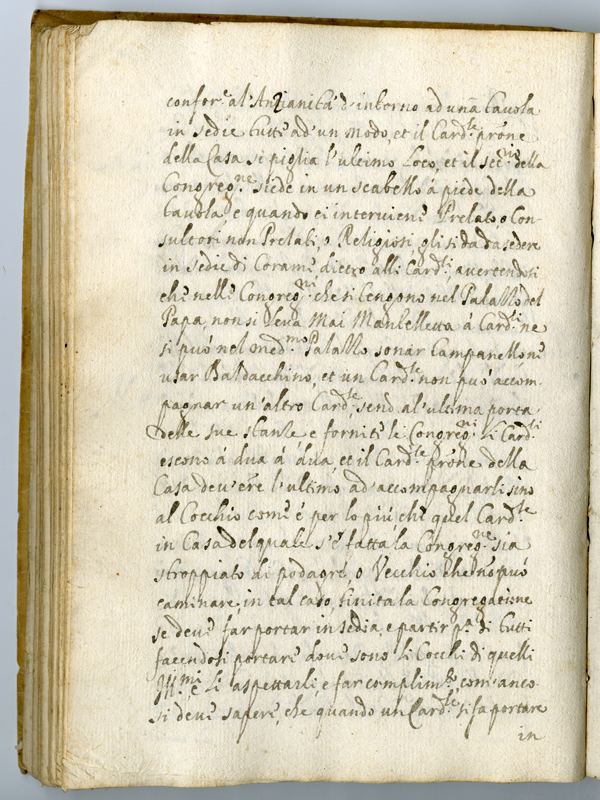 confor.e al'Anzianità d'intorno ad una tavola
in sedie tutti ad'un modo, et il Card.le prõne
della Casa si piglia l'ultimo loco, et il sec.rio della
Congreg.ne siede in un scabello à piede della
tavola, e quando ci interviene Prelato, o Con-
sultori non Prelati, o Religiosi, gli si da da sedere
in sedie di Corame dietro alli Card.li, avertendosi
che nelle Congreg.ni che si tengono nel Palazzo del
Papa, non si leva Mai Mantelletta à Card.li ne
si può nel med.mo Palazzo sonar Campanello ne
usar Baldacchino, et un Card.le non può accom-
pagnar un'altro Card.le, se nõ al'ultima porta
delle sue stanze e fornite le Congreg.ni li Card.li
escono à dua à dua, et il Card.le prõne della
Casa dev'ere l'ultimo ad'accompagnarli sino
al Cocchio come è per lo più che quel Card.le
in Casa del quale s'è fatta la Congreg.ne sia
stroppiato di podagre, o Vecchio che nõ può
caminare, in tal caso, finita la Congregatione
se deve far portar in sedia, e partir p.a di tutti
facendosi portare dove sono li Cocchi di quelli
Ill.mi e li aspettarli, e far complim.to, com'anco
si deve sapere, che quando un Card.le si fa portare
in